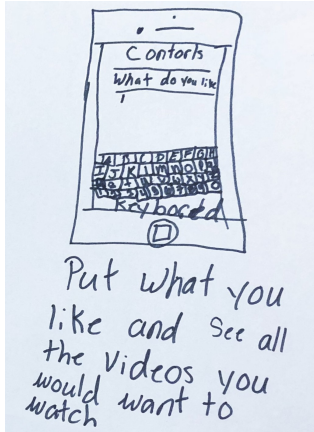 Contorls
What do you like
A B C D E F G H
I J K L M N O P
Keyboard
Put what you
like and see all
the videos you
would want to
watch